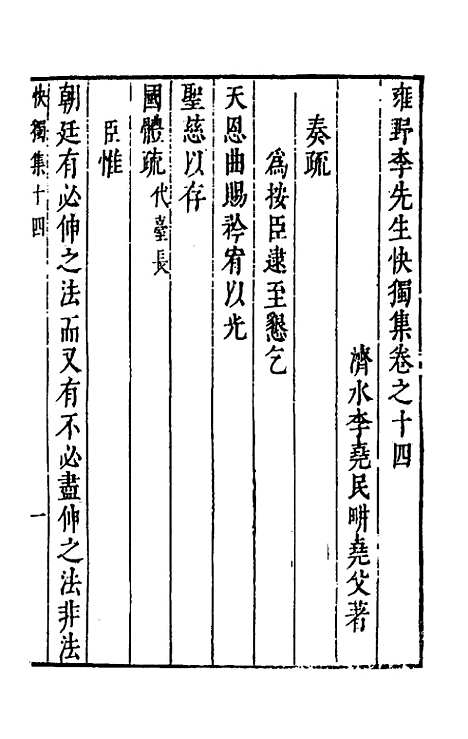 雍野李先生快獨集卷之十四
濟水李堯民畊堯父著
奏疏
為按臣逮至懇乞
天恩曲賜矜宥以光
聖慈以存
國體疏代臺長
臣惟
朝廷有必伸之法而又有不必盡伸之法非法
快獨集十四
一